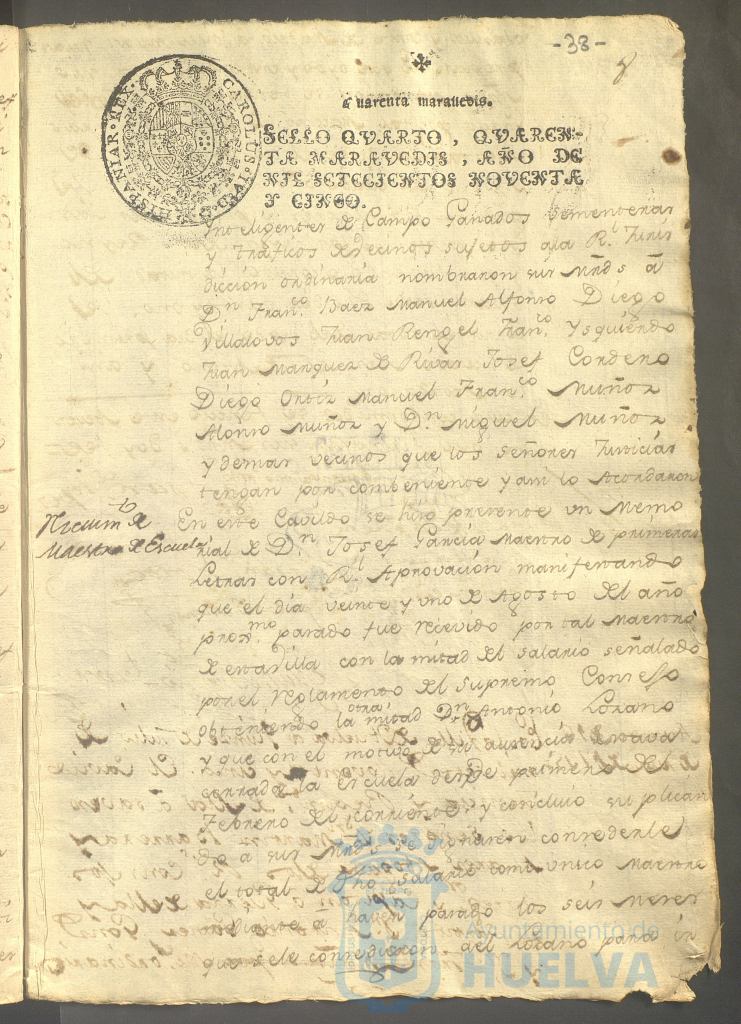 -38-
HISPANIAR·REX· CAROLUS·IV·D·G·
Quarenta maravedis.
SELLO QVARTO, QVAREN-
TA MARAVEDIS, AÑO DE
MIL SETECIENTOS NOVENTA
Y CINCO.
Ynteligentes de Campo Ganados Sementeras
y traficos de vecinos sujetos a la Rl. Juris
diccion ordinaria nombraron sus Mrds a
Dn. Franco. Baez Manuel Alfonso Diego
Villalovos Juan Rengel Franco. Ysquierdo
Juan Marquez de Rivas Josef Cordero
Diego Ortiz Manuel Franco. Muñoz
Alonso Muñoz y Dn. Miguel Muñoz
y demas vecinos que los señores Justicias
tengan por combeniente y asi lo Acordaron
Recivimto. de
Maestro de Escuela
En este Cavildo se hizo presente un Memo
rial de Dn. Josef Garcia Maestro de primeras
Letras con Rl. Aprovacion manifestando
que el dia veinte y uno de Agosto del año
proxmo. pasado fue recevido por tal Maestro
de esta villa con la mitad del salario señalado
por el reglamento del supremo Consejo
obteniendo la otra mitad Dn. Antonio Lozano
y que con el motivo de su ausencia estava
cerrada la escuela desde primero de
Febrero del corriente, y concluio suplican
do a sus Mrds. se dignasen concederle
el total de dho. salario como unico Maestro
mediante a haver pasado los seis meses
que se le concedieron al Lozano para
Ayuntamiento de
HUELVA